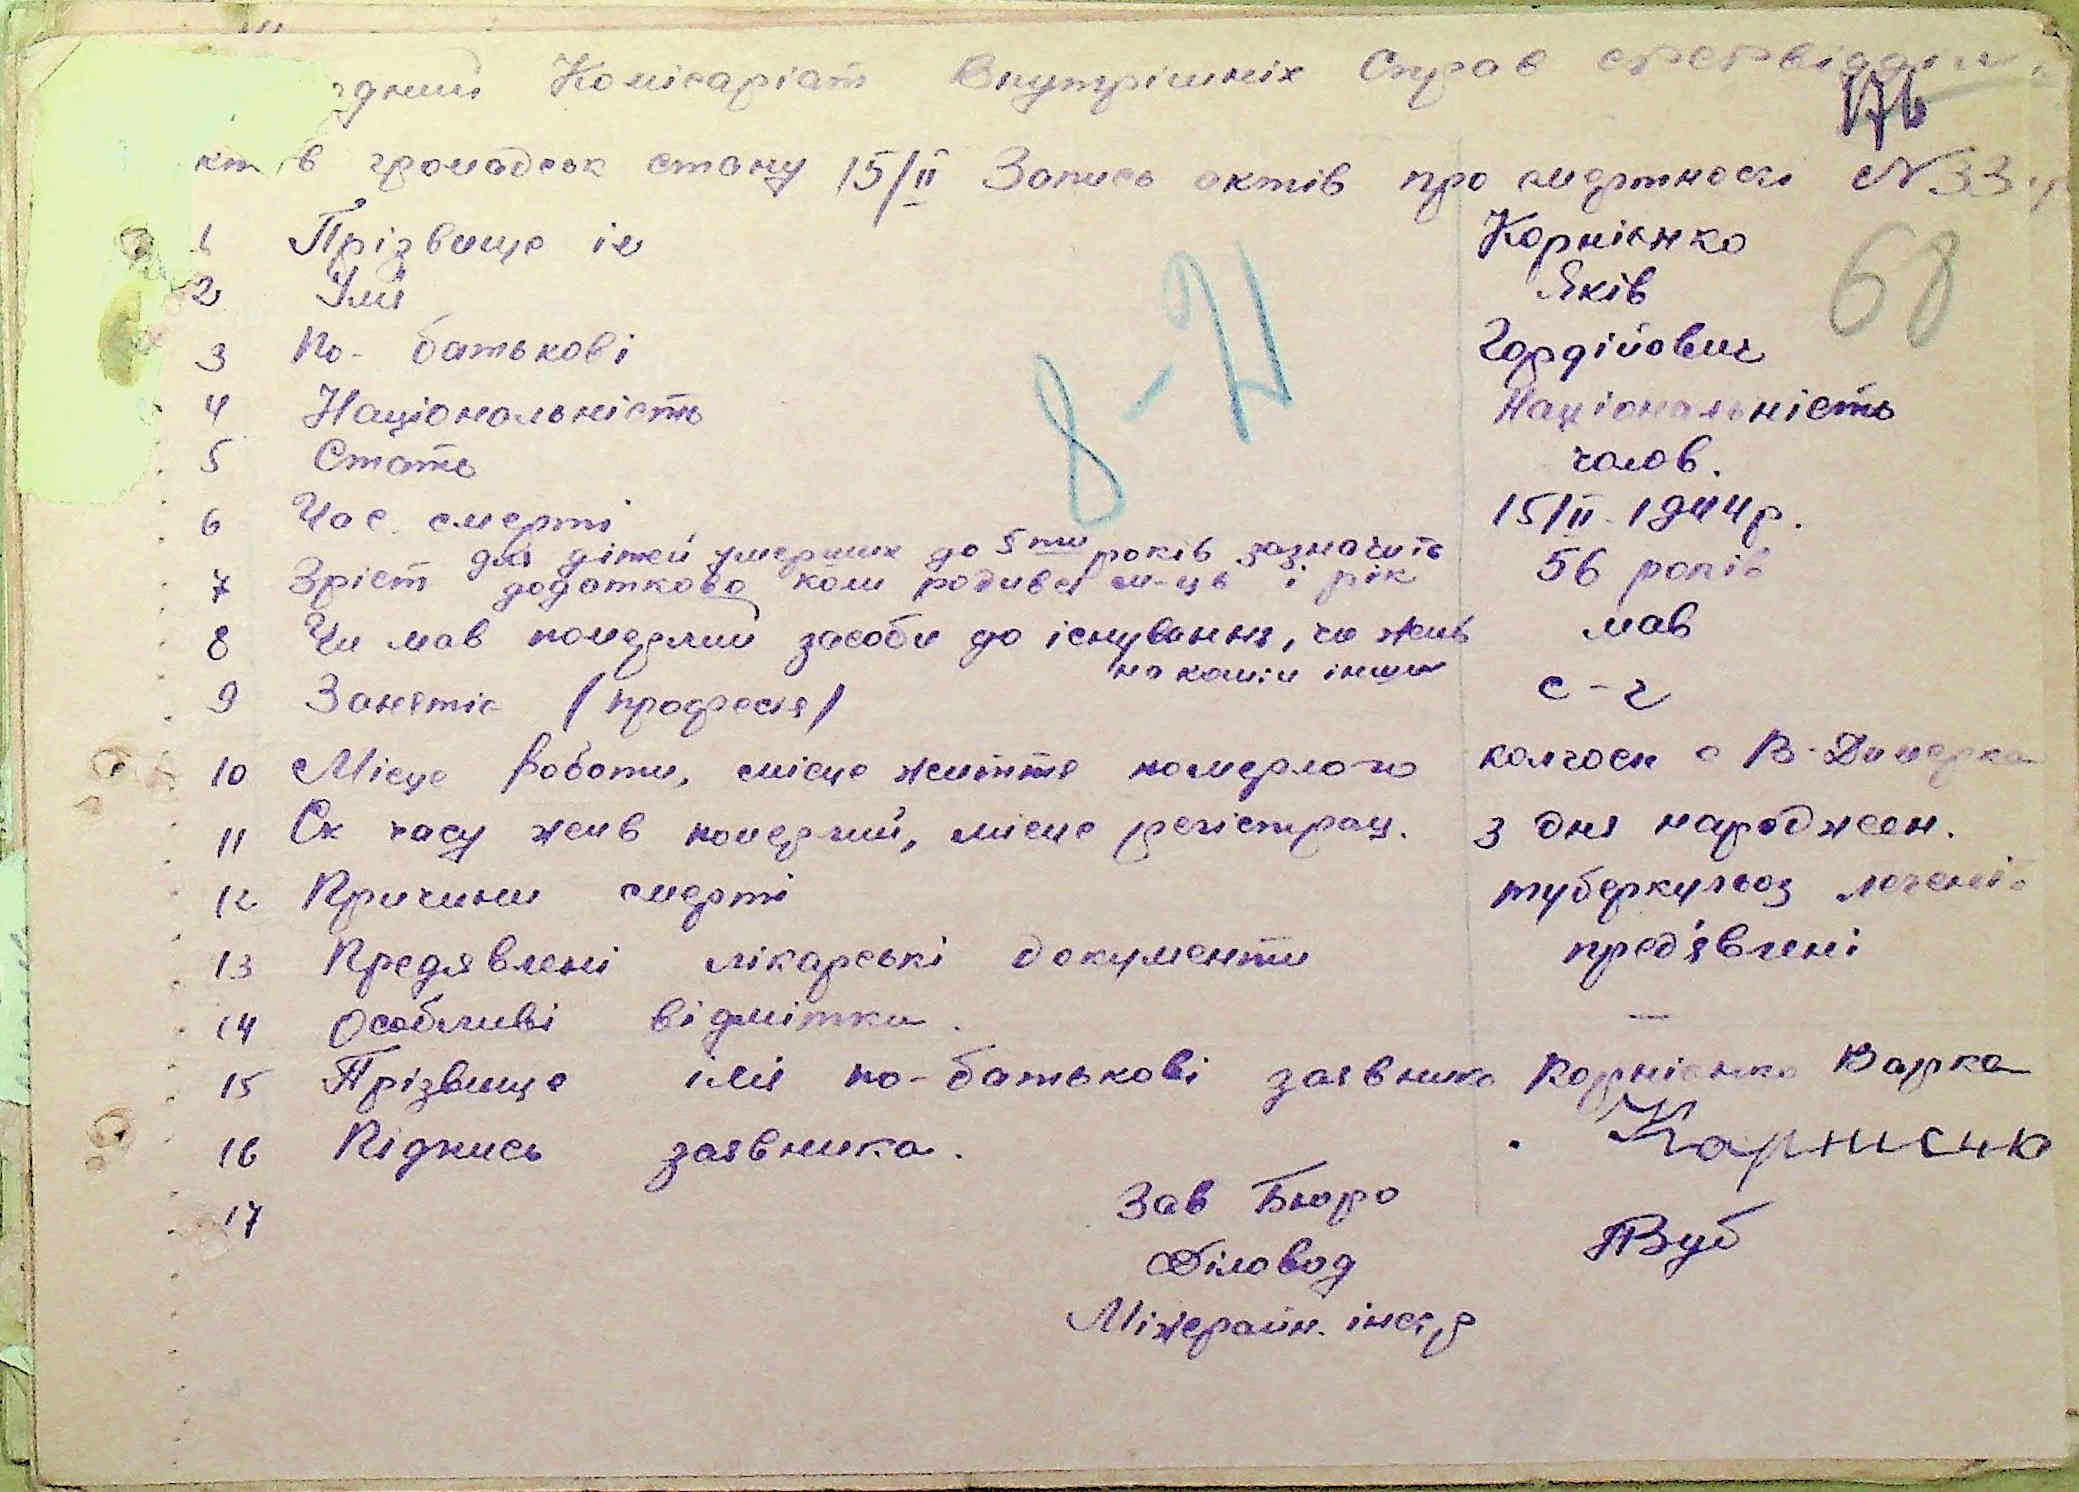 Комісаріат Внутрішніх Справ
176
громадськ стану 15/II Запись актів про смертност № 33
68
8-21
1 Прізвище Корнієнко
2 Імя Яків
3 По-батькові Гордійович
4 Національність Національність
5 Стать чолов.
6 Час смерті 15/II-1944р.
для дітей умерших до 5ти років зазначить
7 Зріст додатково коли родився м-ць і рік 56 років
8 Чи мав померлий засоби до існування, чи жив мав
на кошти інших
9 Занятіє /професия/ с-г
10 Місце роботи, місце життя померлого колгосп с В-Димерка
11 Ск часу жив померлий, місце регістрац. з дня народжен.
12 Причини смерті туберкульоз легенів
13 Предявлені лікарські документи пред'явлені
14 Особливі відмітки. —
15 Прізвище імя по-батькові заявника Корнієнко Варка
16 Підпись заявника.
17 Зав Бюро
Діловод
Міжрайн. інсп